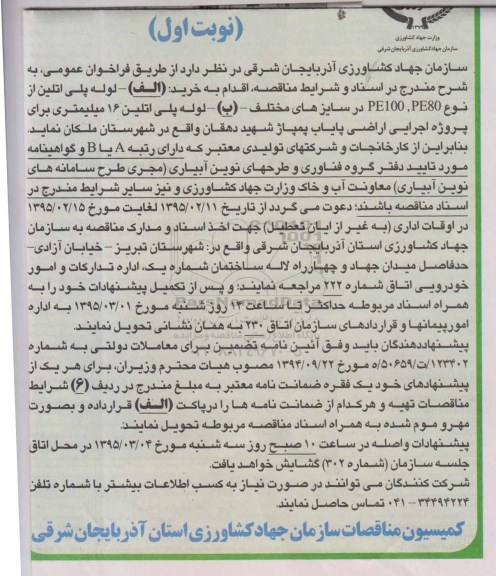 وزارت جهاد کشاورزی
سازمان جهاد کشاورزی آذربایجان شرقی
(نوبت اول)
سازمان جهاد کشاورزی آذربایجان شرقی در نظر دارد از طریق فراخوان عمومی، به
شرح مندرج در اسناد و شرایط مناقصه، اقدام به خرید: (الف) – لوله پلی اتلین از
نوع PE100 ,PE80 در سایزهای مختلف – (ب) – لوله پلی اتلین ۱۶ میلیمتری برای
پروژه اجرایی اراضی پایاب پمپاژ شهید دهقان واقع در شهرستان ملکان نماید.
بنابراین از کارخانجات و شرکتهای تولیدی معتبر که دارای رتبه A یا B و گواهینامه
مورد تایید دفتر گروه فناوری و طرحهای نوین آبیاری (مجری طرح سامانه های
نوین آبیاری) معاونت آب و خاک وزارت جهاد کشاورزی و نیز سایر شرایط مندرج در
اسناد مناقصه باشند؛ دعوت می گردد از تاریخ ۱۳۹۵/۰۲/۱۱ لغایت مورخ ۱۳۹۵/۰۲/۱۵
در اوقات اداری (به غیر از ایان تعطیل) جهت اخذ اسناد و مدارک مناقصه به سازمان
جهاد کشاورزی استان آذربایجان شرقی واقع در: شهرستان تبریز – خیابان آزادی–
حدفاصل میدان جهاد و چهارراه لاله ساختمان شماره یک، اداره تدارکات و امور
خودرویی اتاق شماره ۲۲۲ مراجعه نمایند؛ و پس از تکمیل پیشنهادات خود را به
همراه اسناد مربوطه حداکثر تا ساعت ۱۳ روز شنبه مورخ ۱۳۹۵/۰۳/۰۱ به اداره
امورپیمانها و قراردادهای سازمان اتاق ۲۳۰ به همان نشانی تحویل نمایند.
پیشنهاددهندگان باید وفق آئین نامه تضمین برای معاملات دولتی به شماره
۱۲۳۴۰۲/ت/۵۰۶۵۹ه مورخ ۱۳۹۴/۰۹/۲۲ مصوب هیات محترم وزیران، برای هر یک از
پیشنهادهای خود یک فقره ضمانت نامه معتبر به مبلغ مندرج در ردیف (۶) شرایط
مناقصات تهیه و هرکدام از ضمانت نامه ها را درپاکت (الف) قرارداده و بصورت
مهر و موم شده به همراه اسناد مناقصه مربوطه تحویل نمایند.
پیشنهادات واصله در ساعت ۱۰ صبح روز سه شنبه مورخ ۱۳۹۵/۰۳/۰۴ در محل اتاق
جلسه سازمان (شماره ۳۰۲) گشایش خواهد یافت.
شرکت کنندگان می توانند در صورت نیاز به کسب اطلاعات بیشتر با شماره تلفن
۳۴۴۹۴۲۲۴ – ۰۴۱ تماس حاصل نمایند.
کمیسیون مناقصات سازمان جهاد کشاورزی استان آذربایجان شرقی